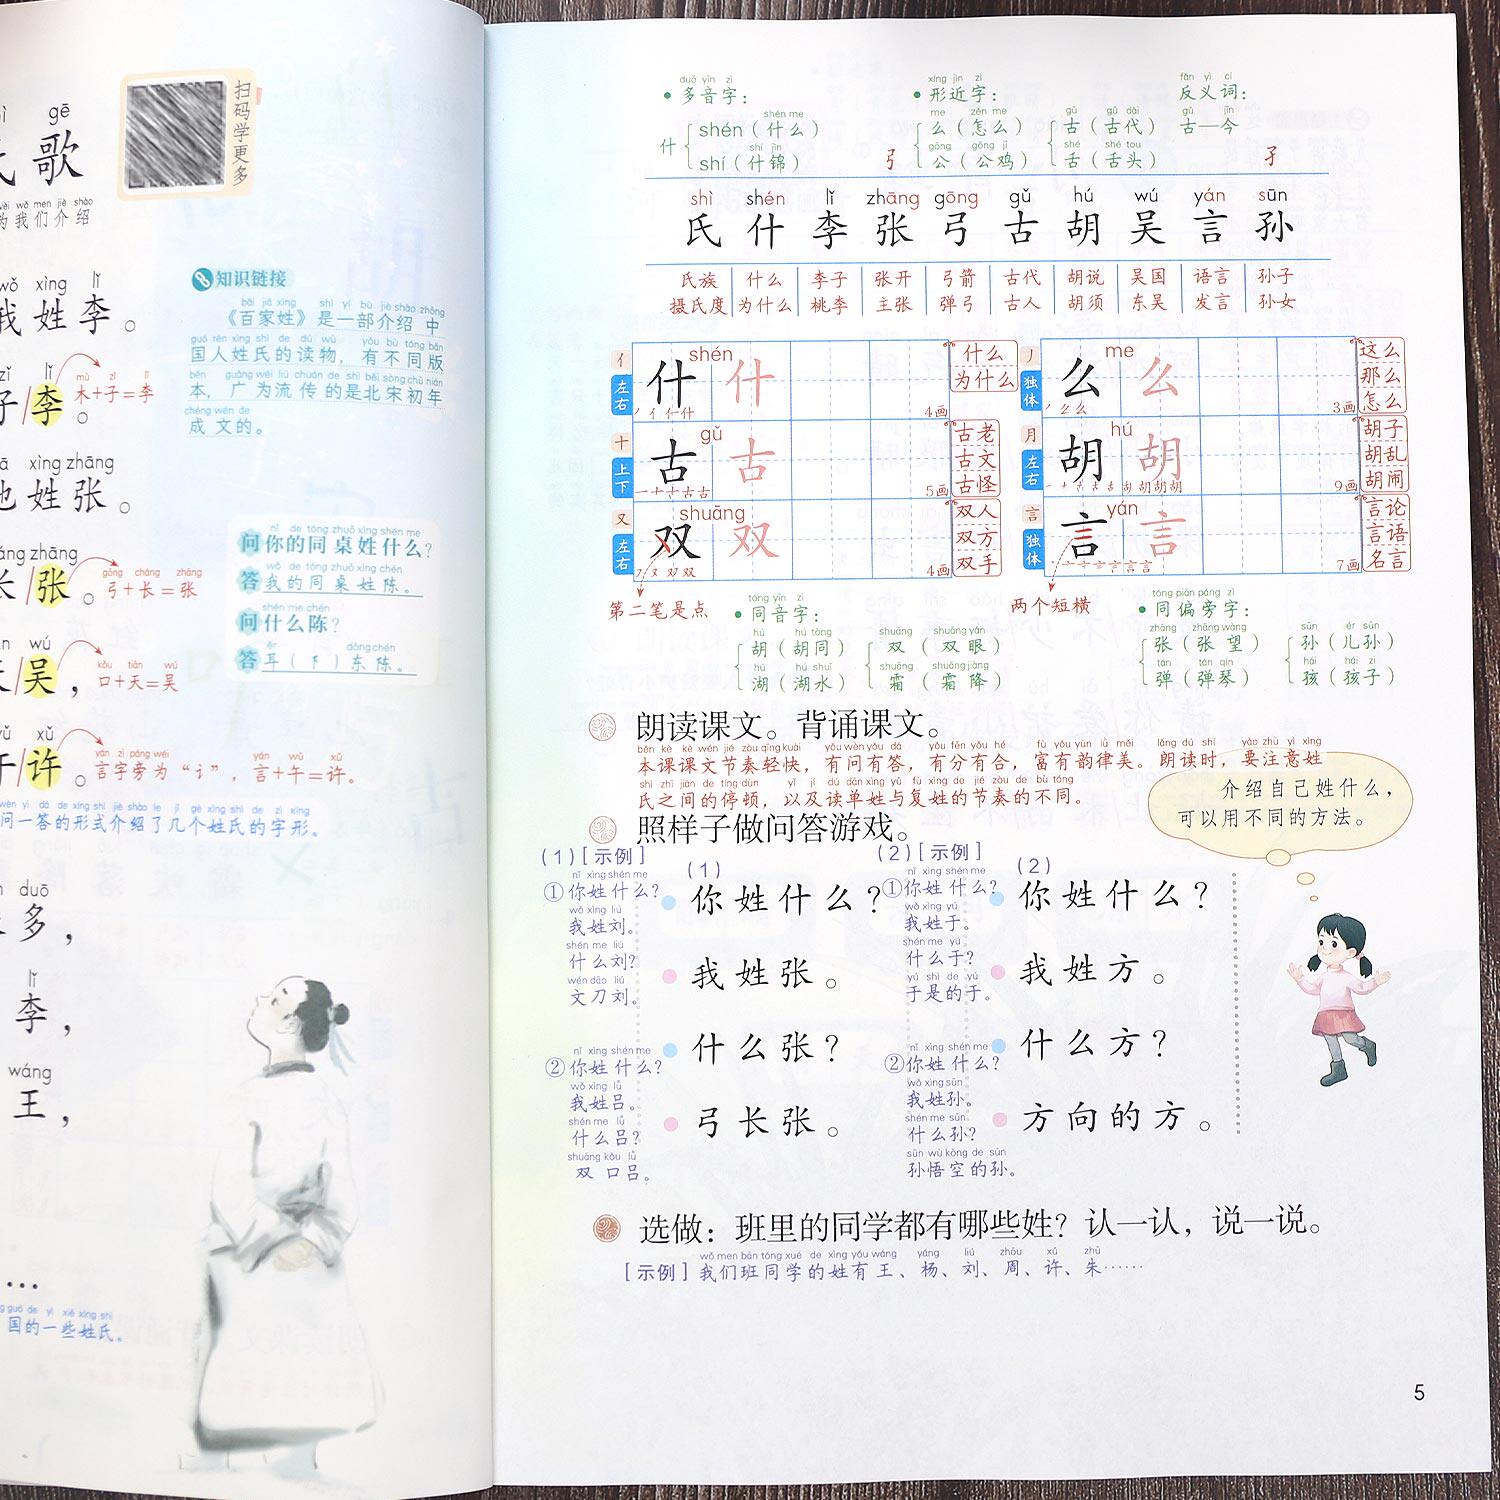 gē
氏歌
扫码学更多
wèi wǒ men jiè shào
为我们介绍
wǒ xìng lǐ
我姓李。
zǐ lǐ
子/李。
mù zǐ lǐ
木+子=李
tā xìng zhāng
他姓张。
zhāng
长/张。
gōng cháng zhāng
弓+长=张
wú
天/吴，
kǒu tiān wú
口+天=吴
xǔ
午/许。
yán zì páng wéi yán wǔ xǔ
言字旁为“讠”，言+午=许。
wèn yì dá de xíng shì jiè shào le jǐ gè xìng shì de zì xíng
问一答的形式介绍了几个姓氏的字形。
duō
多，
lǐ
李，
wáng
王，
……
guó de yì xiē xìng shì
国的一些姓氏。
知识链接
bǎi jiā xìng shì yí bù jiè shào zhōng
《百家姓》是一部介绍中
guó rén xìng shì de dú wù yǒu bù tóng bǎn
国人姓氏的读物，有不同版
běn guǎng wéi liú chuán de shì běi sòng chū nián
本，广为流传的是北宋初年
chéng wén de
成文的。
nǐ de tóng zhuō xìng shén me
问 你的同桌姓什么？
wǒ de tóng zhuō xìng chén
答 我的同桌姓陈。
shén me chén
问 什么陈？
ěr dōng chén
答 耳（阝）东陈。
duō yīn zì xíng jìn zì fǎn yì cí
• 多音字： • 形近字： 反义词：
shén me zěn me gǔ gǔ dài gǔ jīn
什 shén（什么） 么（怎么） 古（古代） 古—今
shí jǐn gōng gōng jī shé shé tou
shí（什锦） 弓 公（公鸡） 舌（舌头） 孑
shì shén lǐ zhāng gōng gǔ hú wú yán sūn
氏 什 李 张 弓 古 胡 吴 言 孙
氏族 什么 李子 张开 弓箭 古代 胡说 吴国 语言 孙子
摄氏度 为什么 桃李 主张 弹弓 古人 胡须 东吴 发言 孙女
亻 左右 shén 什 什 4画 什么 为什么
丿 独体 me 么 么 3画 这么 那么 怎么
十 上下 gǔ 古 古 5画 古老 古文 古怪
月 左右 hú 胡 胡 9画 胡子 胡乱 胡闹
又 左右 shuāng 双 双 4画 双人 双方 双手
言 独体 yán 言 言 7画 言论 言语 名言
第二笔是点
两个短横
tóng yīn zì
• 同音字：
hú hú tòng shuāng shuāng yǎn
胡（胡同） 双（双眼）
hú hú shuǐ shuāng shuāng jiàng
湖（湖水） 霜（霜降）
tóng piān páng zì
• 同偏旁字：
zhāng zhāng wàng sūn ér sūn
张（张望） 孙（儿孙）
tán tán qín hái hái zi
弹（弹琴） 孩（孩子）
朗读课文。背诵课文。
běn kè kè wén jié zòu qīng kuài yǒu wèn yǒu dá yǒu fēn yǒu hé fù yǒu yùn lǜ měi lǎng dú shí yào zhù yì xìng
本课课文节奏轻快，有问有答，有分有合，富有韵律美。朗读时，要注意姓
shì zhī jiān de tíng dùn yǐ jí dú dān xìng yǔ fù xìng de jié zòu de bù tóng
氏之间的停顿，以及读单姓与复姓的节奏的不同。
介绍自己姓什么，
可以用不同的方法。
照样子做问答游戏。
(1)[示例]
nǐ xìng shén me
①你姓什么？
wǒ xìng liú
我姓刘。
shén me liú
什么刘？
wén dāo liú
文刀刘。
nǐ xìng shén me
②你姓什么？
wǒ xìng lǚ
我姓吕。
shén me lǚ
什么吕？
shuāng kǒu lǚ
双口吕。
(1)
你姓什么？
我姓张。
什么张？
弓长张。
(2)[示例]
nǐ xìng shén me
①你姓什么？
wǒ xìng yú
我姓于。
shén me yú
什么于？
yú shì de yú
于是的于。
nǐ xìng shén me
②你姓什么？
wǒ xìng sūn
我姓孙。
shén me sūn
什么孙？
sūn wù kōng de sūn
孙悟空的孙。
(2)
你姓什么？
我姓方。
什么方？
方向的方。
选做：班里的同学都有哪些姓？认一认，说一说。
wǒ men bān tóng xué de xìng yǒu wáng yáng liú zhōu xǔ zhū
[示例]我们班同学的姓有王、杨、刘、周、许、朱……
5